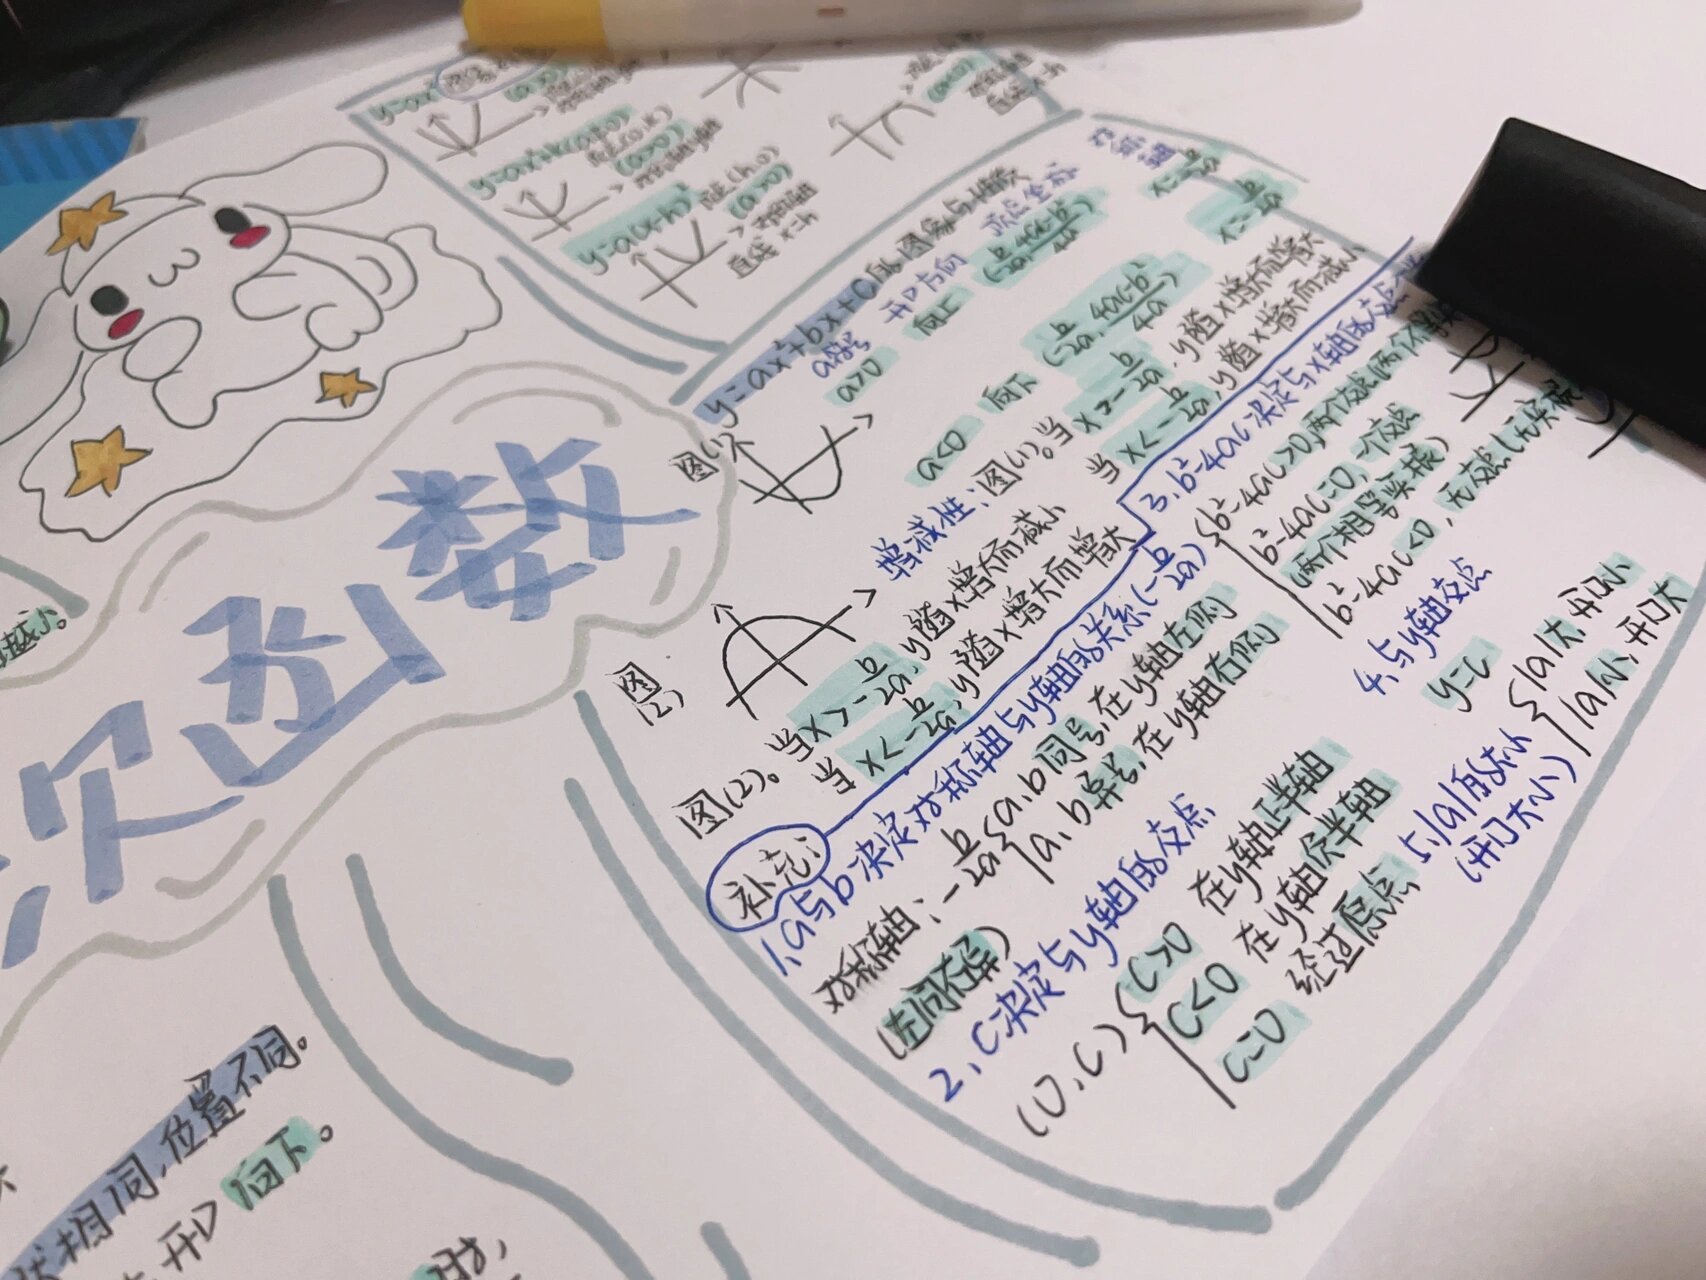 y=ax²
(a>0)
y=ax²+k(a≠0)
顶点(0,k)
(a>0)
y=a(x-h)²
顶点(h,0)
(a>0)
对称轴
直线x=h
(a<0)
对称轴
直线x=h
y=ax²+bx+c的图象与性质
a符号 开口方向 顶点坐标 对称轴
a>0 向上 (-b/2a, 4ac-b²/4a) x=-b/2a
a<0 向下 (-b/2a, 4ac-b²/4a) x=-b/2a
图(1)
图(2)
增减性:图(1)。当x>-b/2a,y随x增大而增大
当x<-b/2a,y随x增大而减小
图(2)。当x>-b/2a,y随x增大而减小
当x<-b/2a,y随x增大而增大
补充:
1.a与b决定对称轴与y轴的关系(-b/2a)
对称轴:-b/2a{a、b同号,在y轴左侧
a、b异号,在y轴右侧
(左同右异)
2、C决定与y轴的交点
(0,c){c>0 在y轴正半轴
c<0 在y轴负半轴
c=0 经过原点
3、b²-4ac决定与x轴的交点
{b²-4ac>0,两个交点(两个
b²-4ac=0,一个交点
(两个相等实根)
b²-4ac<0,无交点(无实根
4、与y轴交点
y=c
5、|a|的大小
(开口大小)
{|a|大,开口小
|a|小,开口大
次函数
越小。
状相同,位置不同。
开口向下。
时,